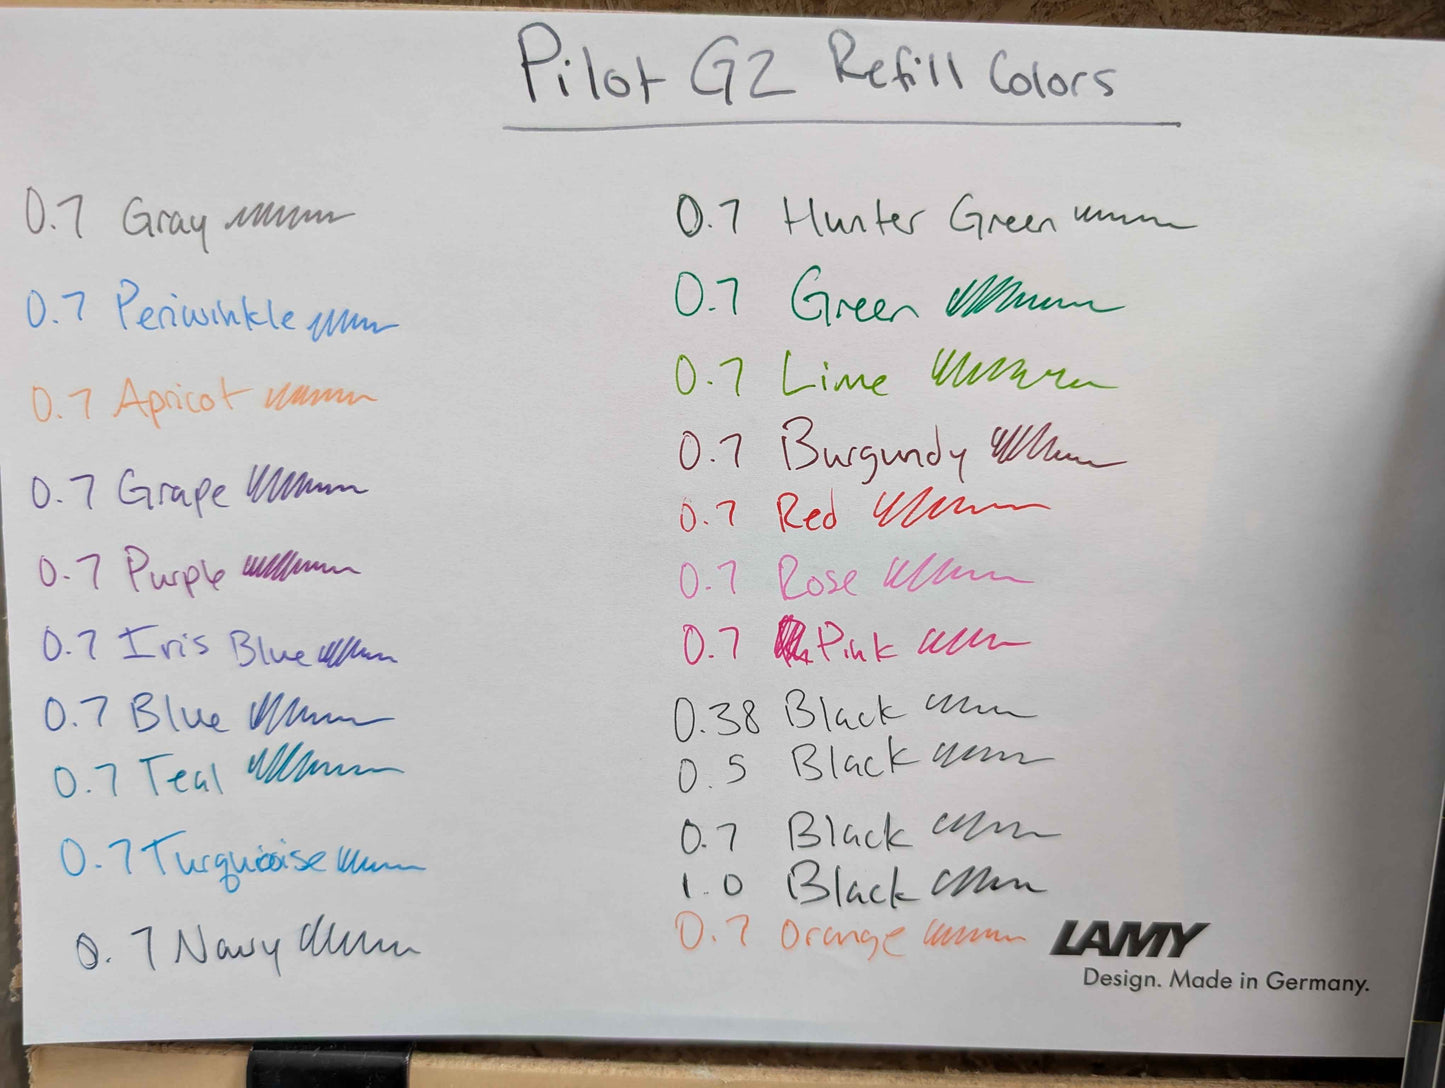 Pilot G2 Refill Colors
0.7 Gray
0.7 Periwinkle
0.7 Apricot
0.7 Grape
0.7 Purple
0.7 Iris Blue
0.7 Blue
0.7 Teal
0.7 Turquoise
0.7 Navy
0.7 Hunter Green
0.7 Green
0.7 Lime
0.7 Burgundy
0.7 Red
0.7 Rose
0.7 Pink
0.38 Black
0.5 Black
0.7 Black
1.0 Black
0.7 Orange
LAMY
Design. Made in Germany.